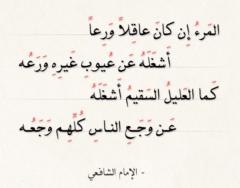 المَرءُ إِن كانَ عاقِلاً وَرِعاً
أَشغَلَهُ عَن عُيوبِ غَيرِهِ وَرَعُه
كَما العَليلُ السَقيمُ أَشغَلَهُ
عَن وَجَعِ الناسِ كُلِّهِم وَجَعُه
- الإمام الشافعي